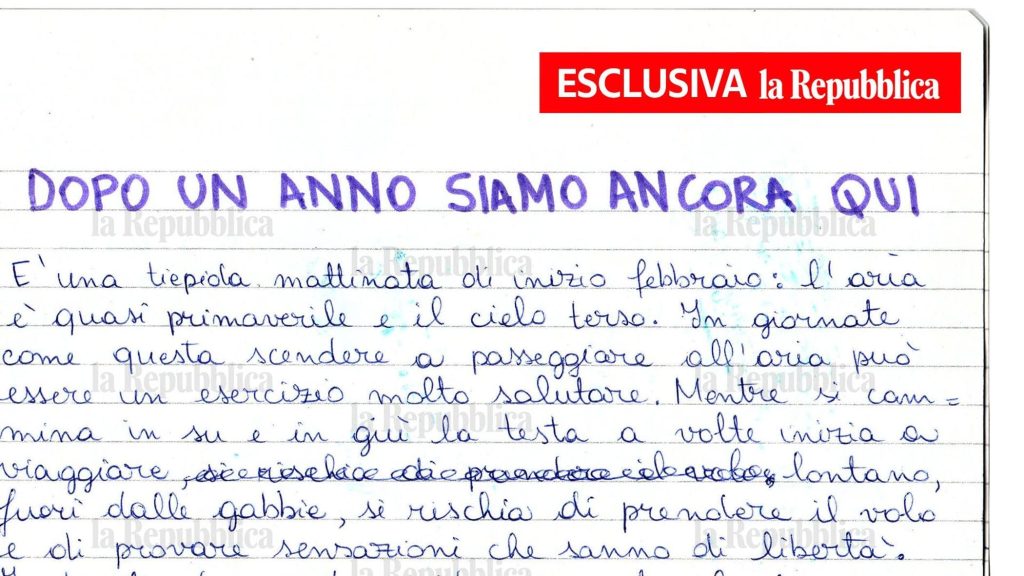 ESCLUSIVA la Repubblica
DOPO UN ANNO SIAMO ANCORA QUI
la Repubblica la Repubblica
la Repubblica
E' una tiepida mattinata di inizio febbraio: l'aria
è quasi primaverile e il cielo terso. In giornate
come questa scendere a passeggiare all'aria può
la Repubblica la Repubblica
essere un esercizio molto salutare. Mentre si cam=
la Repubblica
mina in su e in giù la testa a volte inizia a
viaggiare, si rischia di prendere il volo, lontano,
fuori dalle gabbie, si rischia di prendere il volo
la Repubblica la Repubblica
e di provare sensazioni che sanno di libertà.
la Repubblica